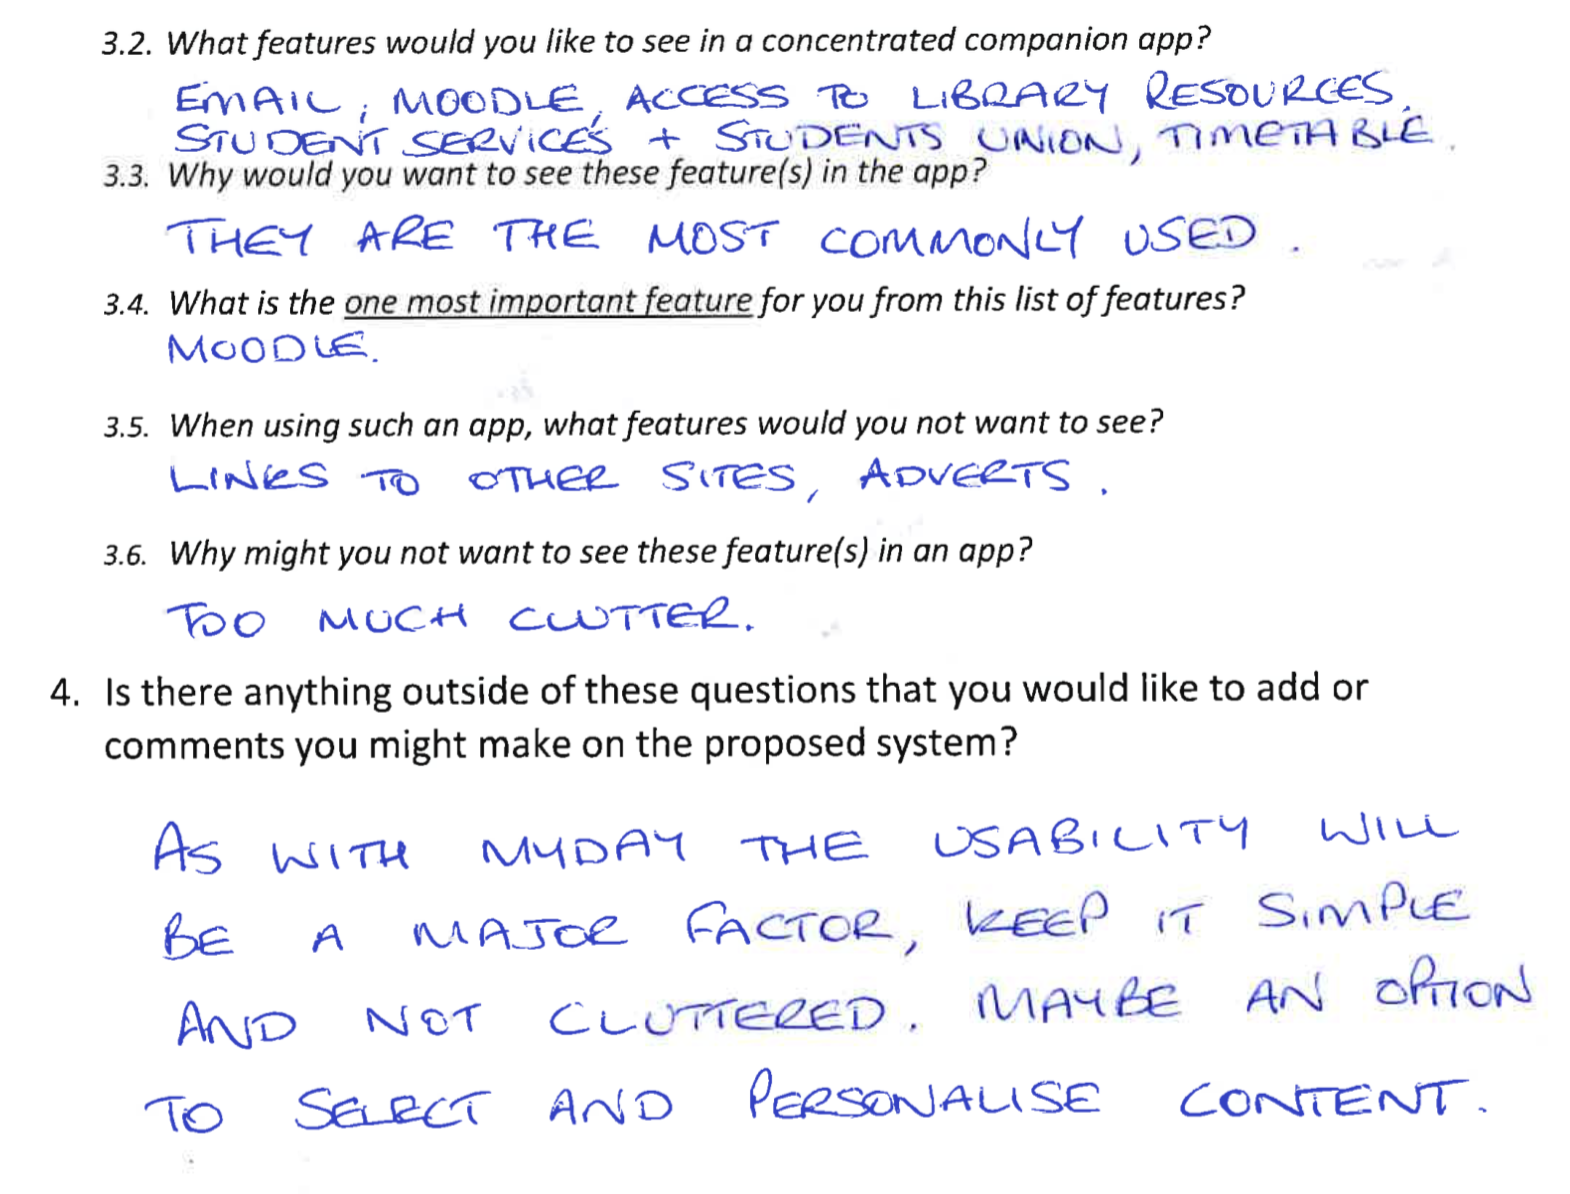 3.2. What features would you like to see in a concentrated companion app?
EMAIL, MOODLE, ACCESS TO LIBRARY RESOURCES,
STUDENT SERVICES + STUDENTS UNION, TIMETABLE.
3.3. Why would you want to see these feature(s) in the app?
THEY ARE THE MOST COMMONLY USED.
3.4. What is the one most important feature for you from this list of features?
MOODLE.
3.5. When using such an app, what features would you not want to see?
LINKS TO OTHER SITES, ADVERTS.
3.6. Why might you not want to see these feature(s) in an app?
TOO MUCH CLUTTER.
4. Is there anything outside of these questions that you would like to add or
comments you might make on the proposed system?
AS WITH MYDAY THE USABILITY WILL
BE A MAJOR FACTOR, KEEP IT SIMPLE
AND NOT CLUTTERED. MAYBE AN OPTION
TO SELECT AND PERSONALISE CONTENT.